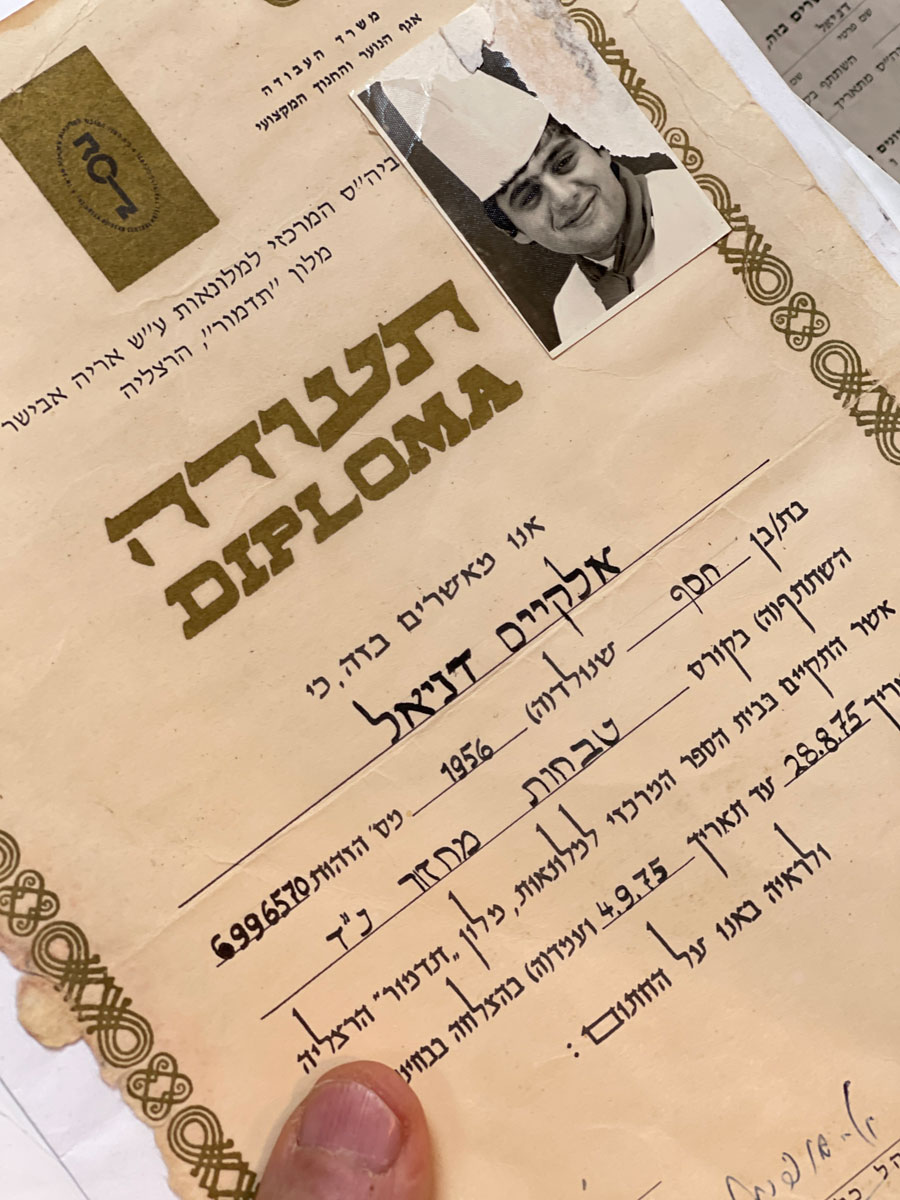 משרד העבודה
אגף הנוער והחנוך המקצועי
ביה״ס המרכזי למלונאות ע״ש אריה אבישר
מלון ״תדמור״, הרצליה
תעודה
DIPLOMA
אנו מאשרים בזה, כי
אלקיים דניאל
בת/בן חסף שנולד(ה) 1956 מס' הזהות 6996570
השתתף(ה) בקורס טבחות מחזור נ"ד
אשר התקיים בבית הספר המרכזי למלונאות, מלון „תדמור" הרצליה
28.8.75 עד תאריך 4.9.75 ועמד(ה) בהצלחה
ולראיה באנו על החתום:
דניאל
שם פרטי
השתתף
מתאריך